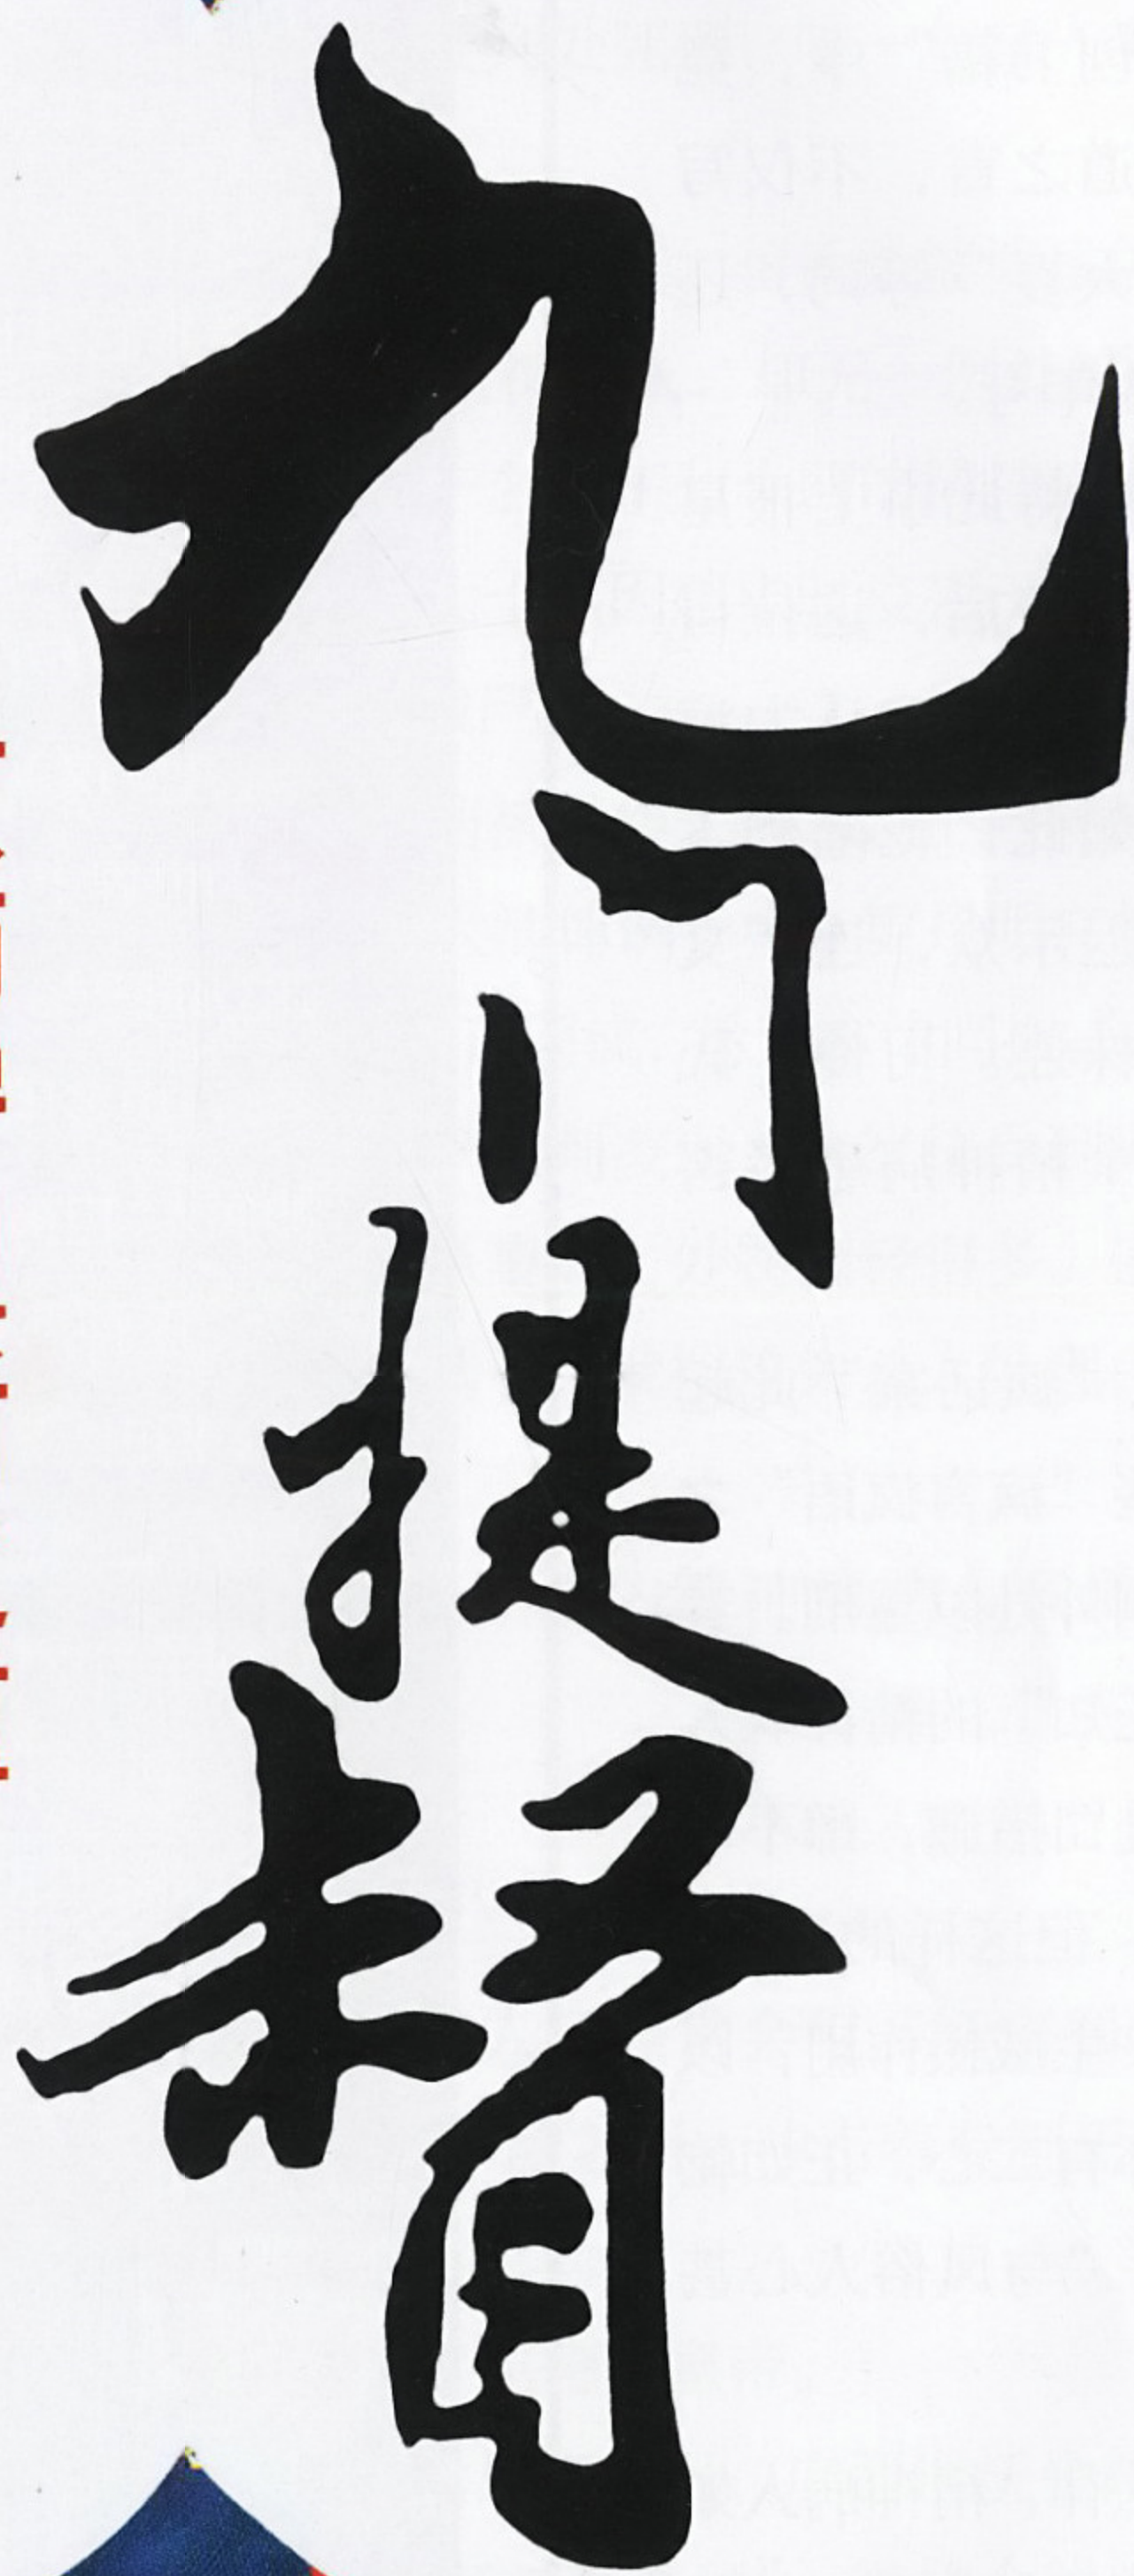 九门提督